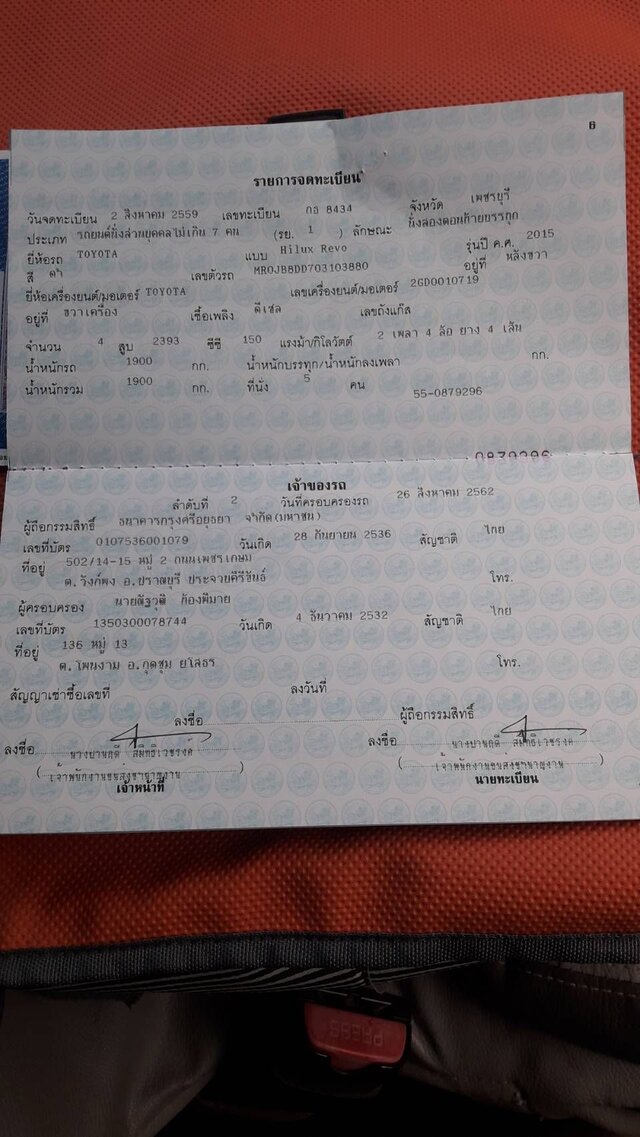 6
รายการจดทะเบียน
วันจดทะเบียน 2 สิงหาคม 2559 เลขทะเบียน กธ 8434 จังหวัด เพชรบุรี
ประเภท รถยนต์นั่งส่วนบุคคลไม่เกิน 7 คน (รย. 1 ) ลักษณะ นั่งสองตอนท้ายบรรทุก
ยี่ห้อรถ TOYOTA แบบ Hilux Revo รุ่นปี ค.ศ. 2015
สี ดำ เลขตัวรถ MR0JB8DD703103880 อยู่ที่ หลังขวา
ยี่ห้อเครื่องยนต์/มอเตอร์ TOYOTA เลขเครื่องยนต์/มอเตอร์ 2GD0010719
อยู่ที่ ขวาเครื่อง เชื้อเพลิง ดีเซล เลขถังแก๊ส
จำนวน 4 สูบ 2393 ซีซี 150 แรงม้า/กิโลวัตต์ 2 เพลา 4 ล้อ ยาง 4 เส้น
น้ำหนักรถ 1900 กก. น้ำหนักบรรทุก/น้ำหนักลงเพลา กก.
น้ำหนักรวม 1900 กก. ที่นั่ง 5 คน
55-0879296
0879296
เจ้าของรถ
ลำดับที่ 2 วันที่ครอบครองรถ 26 สิงหาคม 2562
ผู้ถือกรรมสิทธิ์ ธนาคารกรุงศรีอยุธยา จำกัด(มหาชน)
เลขที่บัตร 0107536001079 วันเกิด 28 กันยายน 2536 สัญชาติ ไทย
ที่อยู่ 502/14-15 หมู่ 2 ถนนเพชรเกษม
ต.วังก์พง อ.ปราณบุรี ประจวบคีรีขันธ์ โทร.
ผู้ครอบครอง นายณัฐวุฒิ ก้องพิมาย
เลขที่บัตร 1350300078744 วันเกิด 4 ธันวาคม 2532 สัญชาติ ไทย
ที่อยู่ 136 หมู่ 13
ต.โพนงาม อ.กุดชุม ยโสธร โทร.
สัญญาเช่าซื้อเลขที่ ลงวันที่
ลงชื่อ ผู้ถือกรรมสิทธิ์
ลงชื่อ ลงชื่อ
นางปานฤดี สมิทธิเวชรงค์ นางปานฤดี สมิทธิเวชรงค์
(เจ้าพนักงานขนส่งชำนาญงาน) (เจ้าพนักงานขนส่งชำนาญงาน)
เจ้าหน้าที่ นายทะเบียน
PRESS